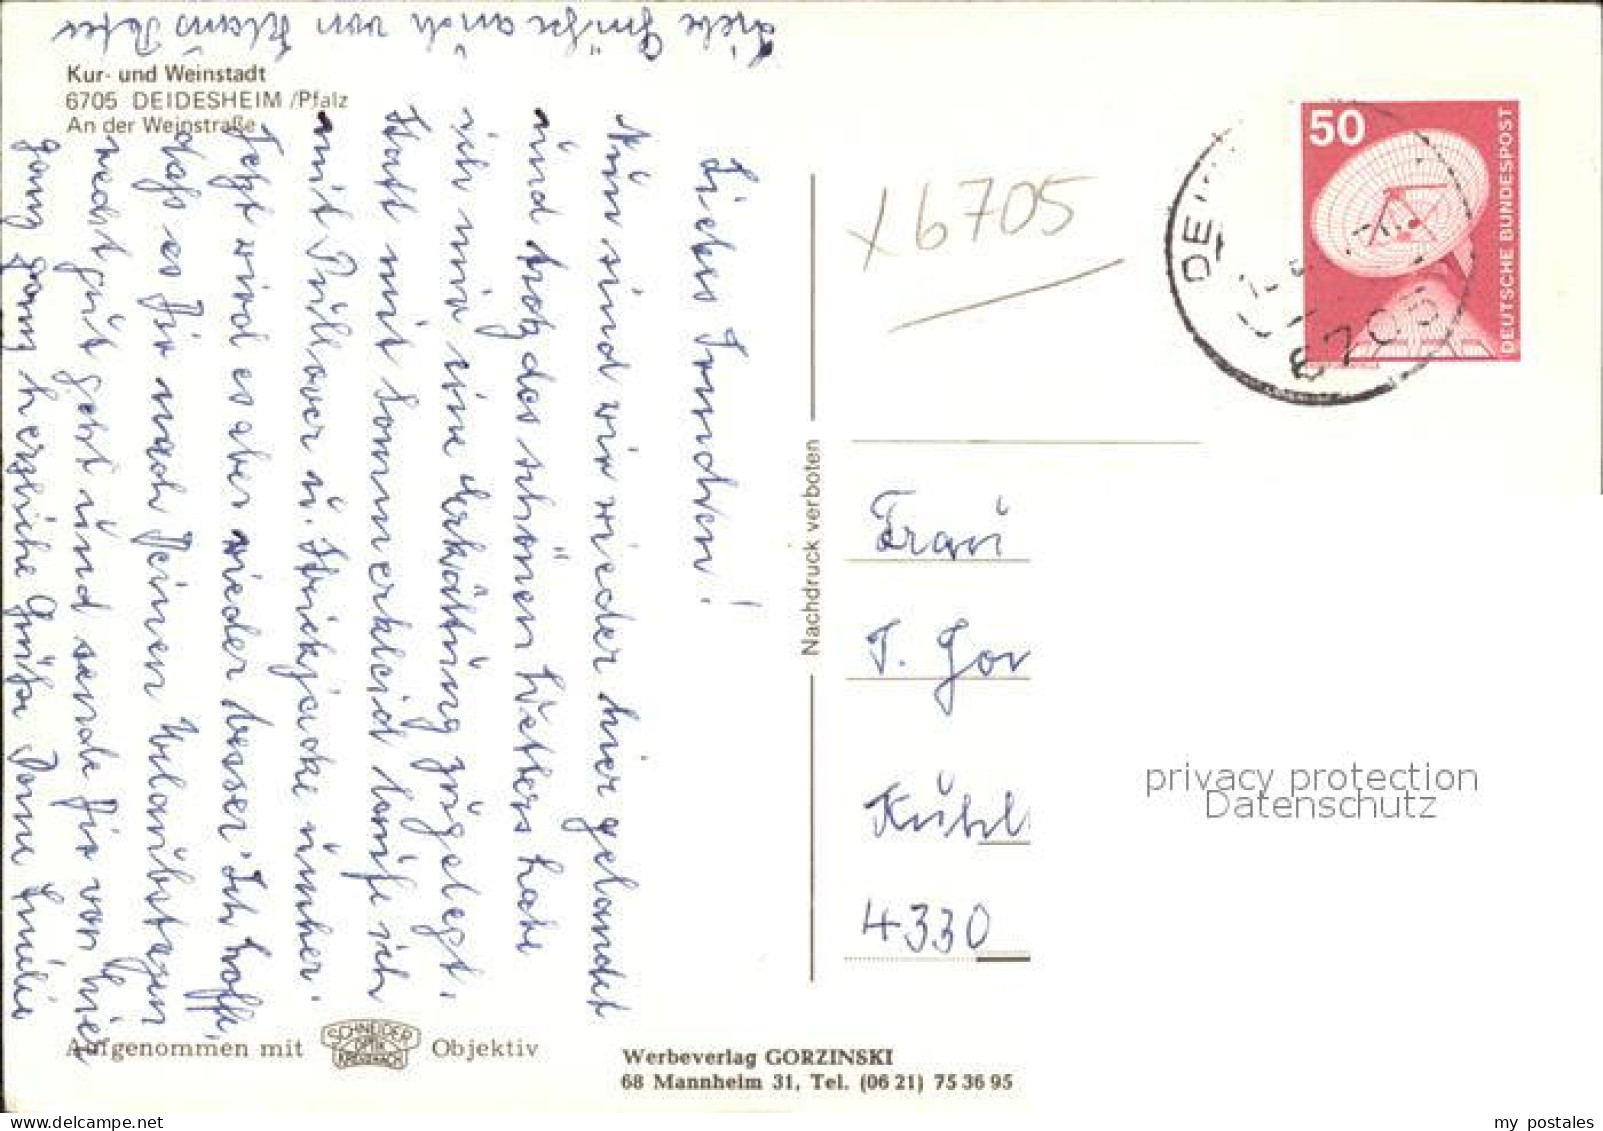 Kur- und Weinstadt
6705 DEIDESHEIM /Pfalz
An der Weinstraße
Liebes Trudchen!
Nun sind wir wieder hier gelandet
und trotz des schönen Wetters habe
ich mir eine Erkältung zugelegt.
Statt mit Sommerkleid laufe ich
mit Pullover u. Strickjacke umher.
Jetzt wird es aber wieder besser. Ich hoffe,
daß es Dir nach Deinen Urlaubstagen
recht gut geht und sende Dir von hier
ganz ganz herzliche Grüße Deine Emilie
Liebe Grüße auch von Klaus Peter
Aufgenommen mit
SCHNEIDER
OPTIK
KREUZNACH
Objektiv
Nachdruck verboten
Werbeverlag GORZINSKI
68 Mannheim 31, Tel. (06 21) 75 36 95
x 6705
50
DEUTSCHE BUNDESPOST
DEI
6705
Frau
T. Gor
Kühl
4330
privacy protection
Datenschutz
my postales